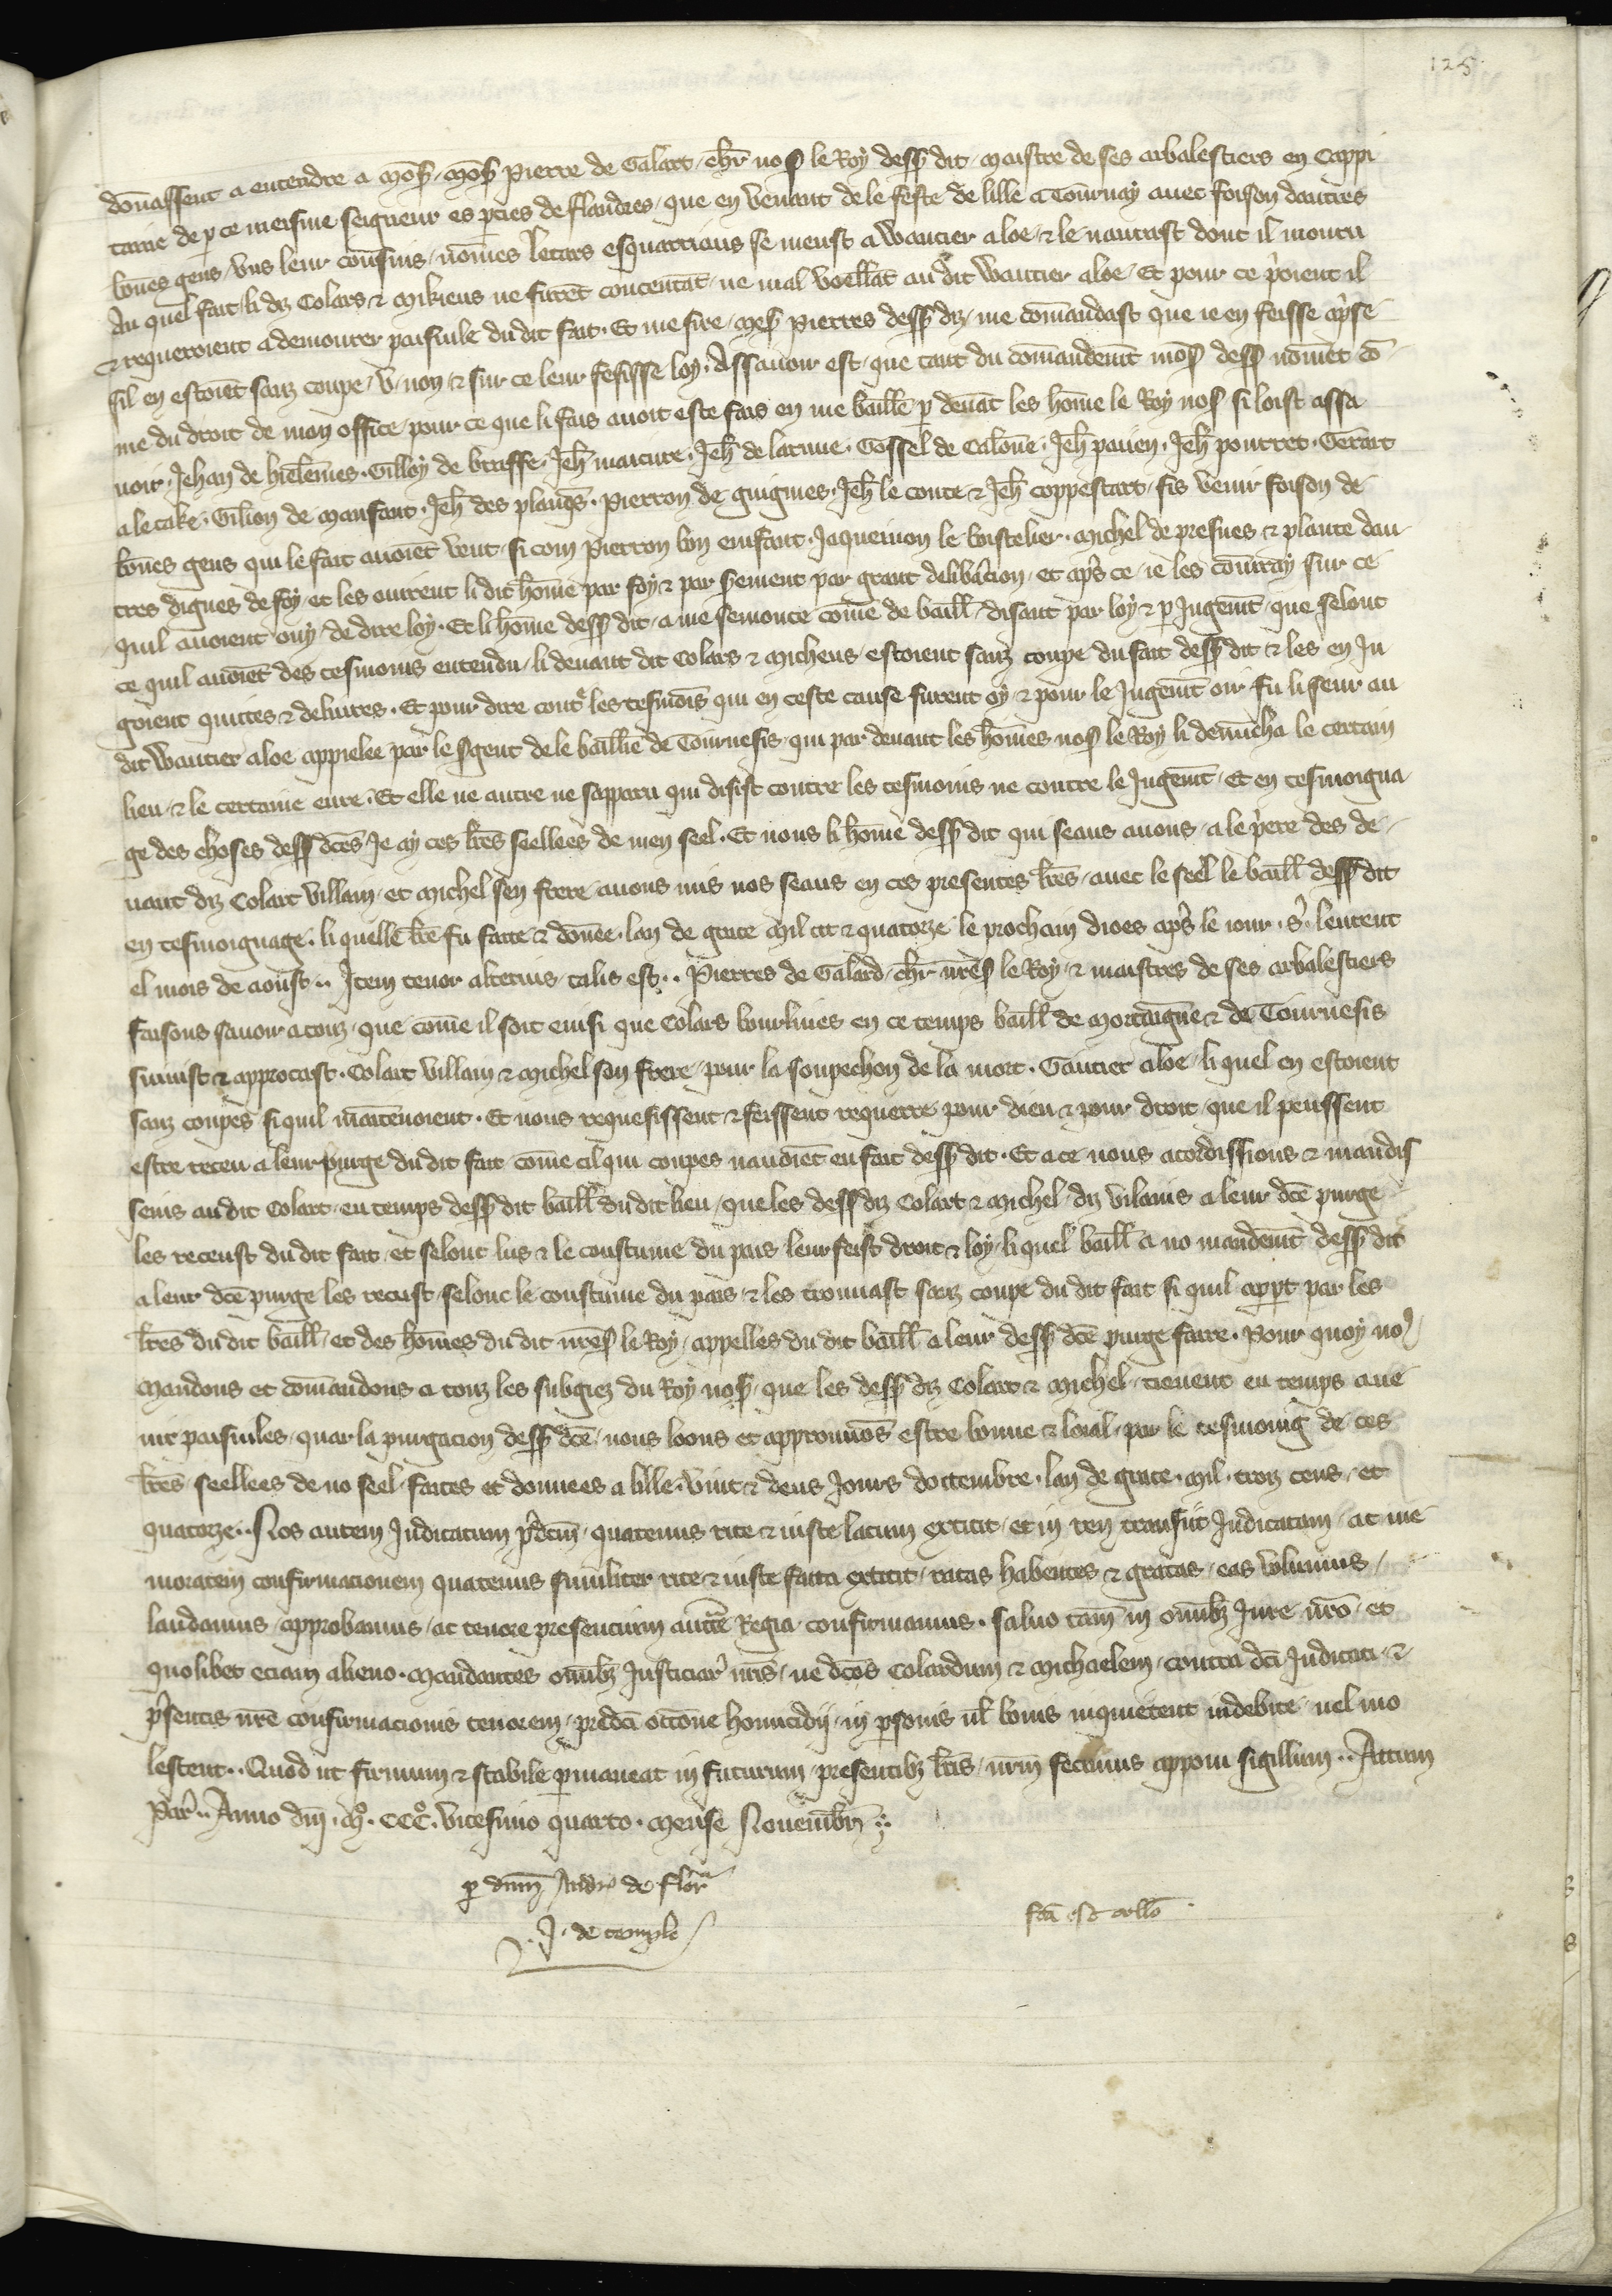 125
dōnassent a entendre a mōs᷎ · mōs᷎ Pierre de Galart · ch̅r nos᷎ le Roy dess᷎ dit · maistre de ses arbalestiers en Cappi
tainie de p ce meisme seigneur es pties de flandres · que en venant de le feste de lille a Tournay auec foison dautres
bōnes gens / vns leur cousins / nōmes Letars esquarriaus se meust a wautier aloe · & le naurast dont il mouru
Au quel fait / li diz Colars & mikieus ne furēt concentāt / ne mal voellāt au dit wautier aloe · Et pour ce p̓oient il
& requeroient a demourer paisiule du dit fait · Et me sire / mes᷎ Pierres dess᷎ diz / me cōmandast que ie en feisse ap̓se
sil en estoiēt sanz coupe / v / non / & sur ce leur fesisse loy · Assauoir est / que tant du cōmandemt̄ mōs᷎ dess᷎ nōmet cō
me du droit de mon office / pour ce que li fais auoit este fais en me baillie p deuāt les hōme le Roy nos᷎ si loist assa
uoir · Jehan de hielemes · Gilloy de braffe · Jeh̄ maicure · Jeh̄ de latuue · Gossel de Calōne · Jeh̄ paiien · Jeh̄ pourret · Gerart
a le take · Gilion de mansant · Jeh̄ des plāqs · Pierron de guignies · Jeh̄ le conte & Jeh̄ coppestart / fis venir foison de
bōnes gens qui le fait auoiēt veut / si com Pierron bon enfant · Jaquemon le boistelier · michel de presnes & plante dau
tres dignes de foy / et les ouirent li dit hōme par foy & par s̓ement / par grant delib̓acion / et ap̓s ce / ie les cōiuray sur ce
quil auoient ouy / de dire loy · Et li hōme dess᷎ dit / a me semonce cōme de baill̄ / disant par loy & p Jugemt̄ / que selont
ce quil auoiēt des tesmoins entendu / li deuant dit Colars & michens / estoient sanz coupe du fait dess᷎ dit & les en Ju
goient quittes & deliures · Et pour dire contͤ les tesmōis qui en ceste cause furent oy & pour le Jugemt̄ oir fu li seur au
dit wautier aloe appielee par le s̓gent de le baillie de Tournesis · qui par deuant les hōmes nos᷎ le Roy li denūcha le certain
lieu & le certaine eure · Et elle ne autre ne sapparu qui desist contre les tesmoins ne contre le Jugemt̄ · Et en tesmoigna
ge des choses dess᷎ dc̄es Je ay ces lr̄es seellees de men seel · Et nous li hōme dess᷎ dit qui seaus auons / a le p̓ere des de
uant diz Colart villain / et michel sen frere / auons mis nos seaus en ces presentes lr̄es / auec le seel le baill̄ dess᷎ dit
en tesmoignage · li quelle lr̄e fu faite & dōnee / lan de grace mil ccc & quatorze le prochain dioes ap̓s le iour · s̓ · leurent
el mois de aoust ·· Item tenor alterius / talis est ·· Pierres de Galard / ch̅r nr̄es᷎ le Roy / & maistres de ses arbalestiers
faisons sauoir a touz / que cōme il soit ensi que Colars bourliues en ce temps baill̄ de mortaigne & de Tournesis
suiuist & approcast · Colart villain & michel son frere / pour la soupechon de la mort · Gautier aloe / li quel en estoient
sanz coupes si quil mātenoient · Et nous requesissent & feissent requerre pour dieu & pour droit / que il peussent
estre receu a leur purge du dit fait cōme cil qui coupes nauoiēt en fait dess᷎ dit · Et a ce nous acordissions & mandis
sens au dit Colart / en temps dess᷎ dit baill̄ du dit lieu / que les dess᷎ diz Colart & michel / diz vilains a leur dc̄e purge
les receust du dit fait / et selont lus & le coustume du pais leur feist droit & loy / li quel baill̄ a no mandemt̄ dess᷎ dit
a leur dc̄e purge les recust / selonc le coustume du pais / & les trouuast sanz coupe du dit fait si quil appt̄ par les
lr̄es du dit baill̄ / et des hōmes du dit nr̄es᷎ le Roy / appelles du dit baill̄ a leur dess᷎ dc̄e purge faire · Pour quoy noꝰ
mandons et cōmandons a touz les subgiez du Roy nos᷎ / que les dess᷎ diz Colart & michel / tienent en temps aue
nir paisiules / quar la purgacion dess᷎ dc̄e / nous loons et approuuōs estre bonne & loial / par le tesmoing de ces
lr̄es seellees de no seel / faites et donnees a lille / vint & deus Jours doctembre / lan de grace · mil · troiz cens / et
quatorze ·· Nos autem Judicatum p̓dc̄m / quatenus rite & iuste latum extitit / et in rem transiit Judicatam / ac me
moratem confirmacionem quatenus similiter rite & iuste facta extitit / ratas habentes & gratas / eas volumus /
laudamus / approbamus / ac tenore presencium auctͤ Regia / confirmamus · saluo tam̄ in omībꝫ Jure nr̄o / et
quolibet eciam alieno · mandantes omībꝫ Justiciar̓ nr̄is / ne dc̄os Colardum & michaelem / contra dc̄i Judicati / &
p̓sentis nr̄e confirmacionis tenorem / predc̄i occōne homicidij / in p̱sonis ul̄ bonis inquietent indebite / uel mo
lestent ·· Quod ut firmum & stabile p̱maneat in futurum / presentibꝫ lr̄is / nr̄m fecimus apponi sigillum ·· Actum
Par̓ ·· Anno dn̄i · mº · CCCº · vicesimo quarto · mense Nouemb̄r ·:·
p dnm̄ Andr̓ de flor̓
J · de templo
fc̄a est collō